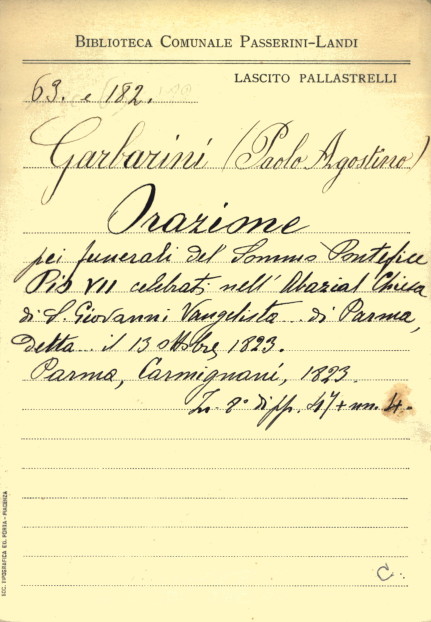 BIBLIOTECA COMUNALE PASSERINI-LANDI
LASCITO PALLASTRELLI
63. e 182.
Garbarini (Paolo Agostino)
Orazione
pei funerali del Sommo Pontefice
Pio VII celebrati nell' Abazial Chiesa
di S. Giovanni Vangelista di Parma,
detta il 13 ottobre, 1823.
Parma, Carmignani, 1823.
In 8° di pp. 47 + nn. 4.
C.
SOC. TIPOGRAFICA ED. PORTA - PIACENZA